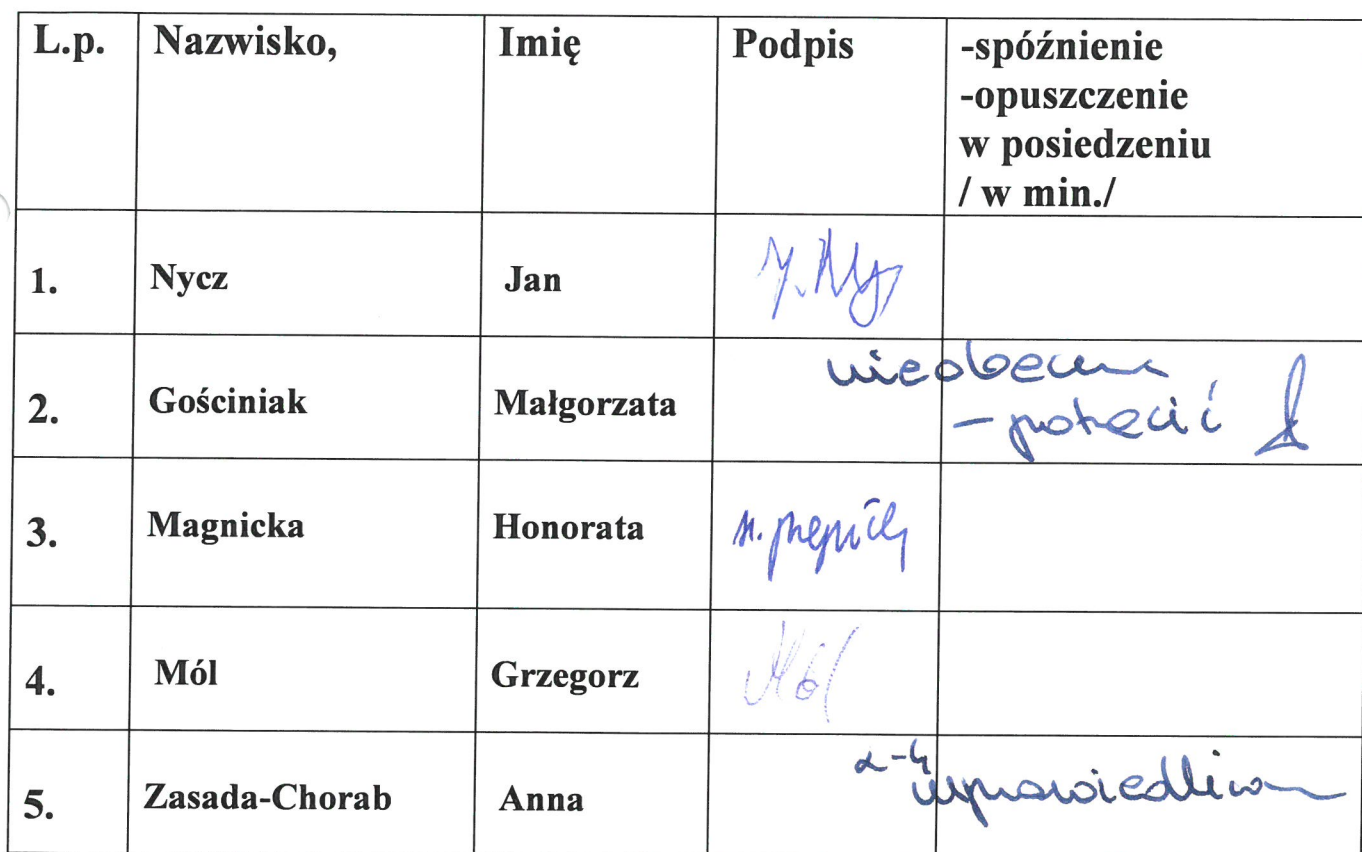 L.p. Nazwisko, Imię Podpis -spóźnienie
-opuszczenie
w posiedzeniu
/ w min./
1. Nycz Jan J. Ny
2. Gościniak Małgorzata nieobecna
- potrącić
3. Magnicka Honorata
4. Mól Grzegorz Mól
5. Zasada-Chorab Anna usprawiedliwiona